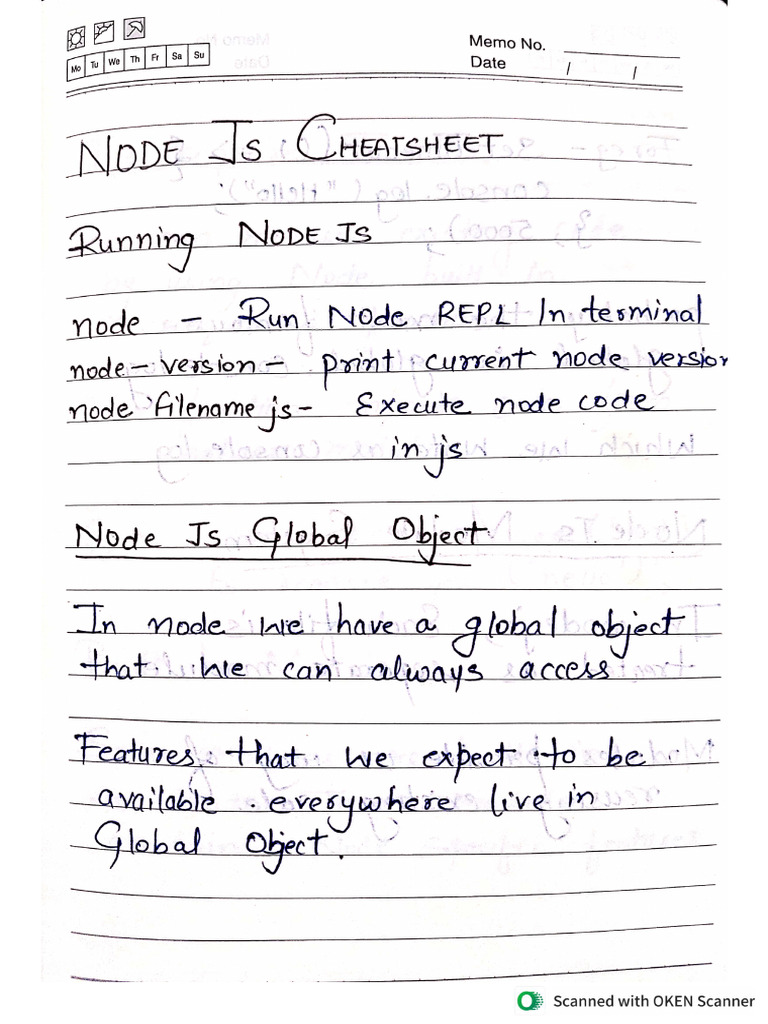 Mo Tu We Th Fr Sa Su
Memo No.
Date / /
NODE JS CHEATSHEET
Running NODE JS
node - Run Node REPL In terminal
node-version- print current node version
node filename js- Execute node code
in js
Node Js Global Object
In node we have a global object
that we can always access
Features that we expect to be
available everywhere live in
Global Object.
Scanned with OKEN Scanner